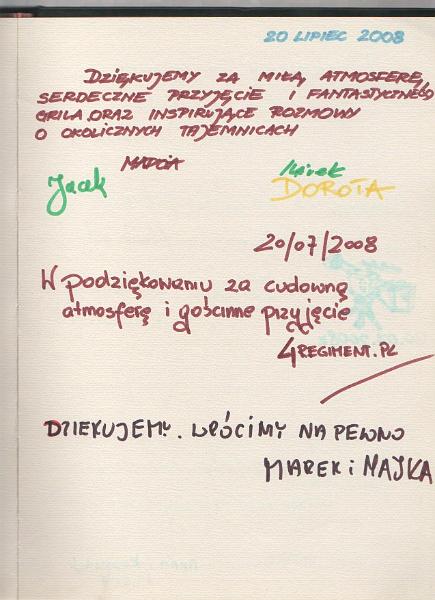 20 LIPIEC 2008
DZIĘKUJEMY ZA MIŁĄ ATMOSFERĘ,
SERDECZNE PRZYJĘCIE I FANTASTYCZNEGO
GRILA ORAZ INSPIRUJĄCE ROZMOWY
O OKOLICZNYCH TAJEMNICACH
Jacek
Mirek
DOROTA
20/07/2008
W podziękowaniu za cudowną
atmosferę i gościnne przyjęcie
4REGIMENT.PL
DZIEKUJEMY. WRÓCIMY NA PEWNO
MAREK i MAJKA